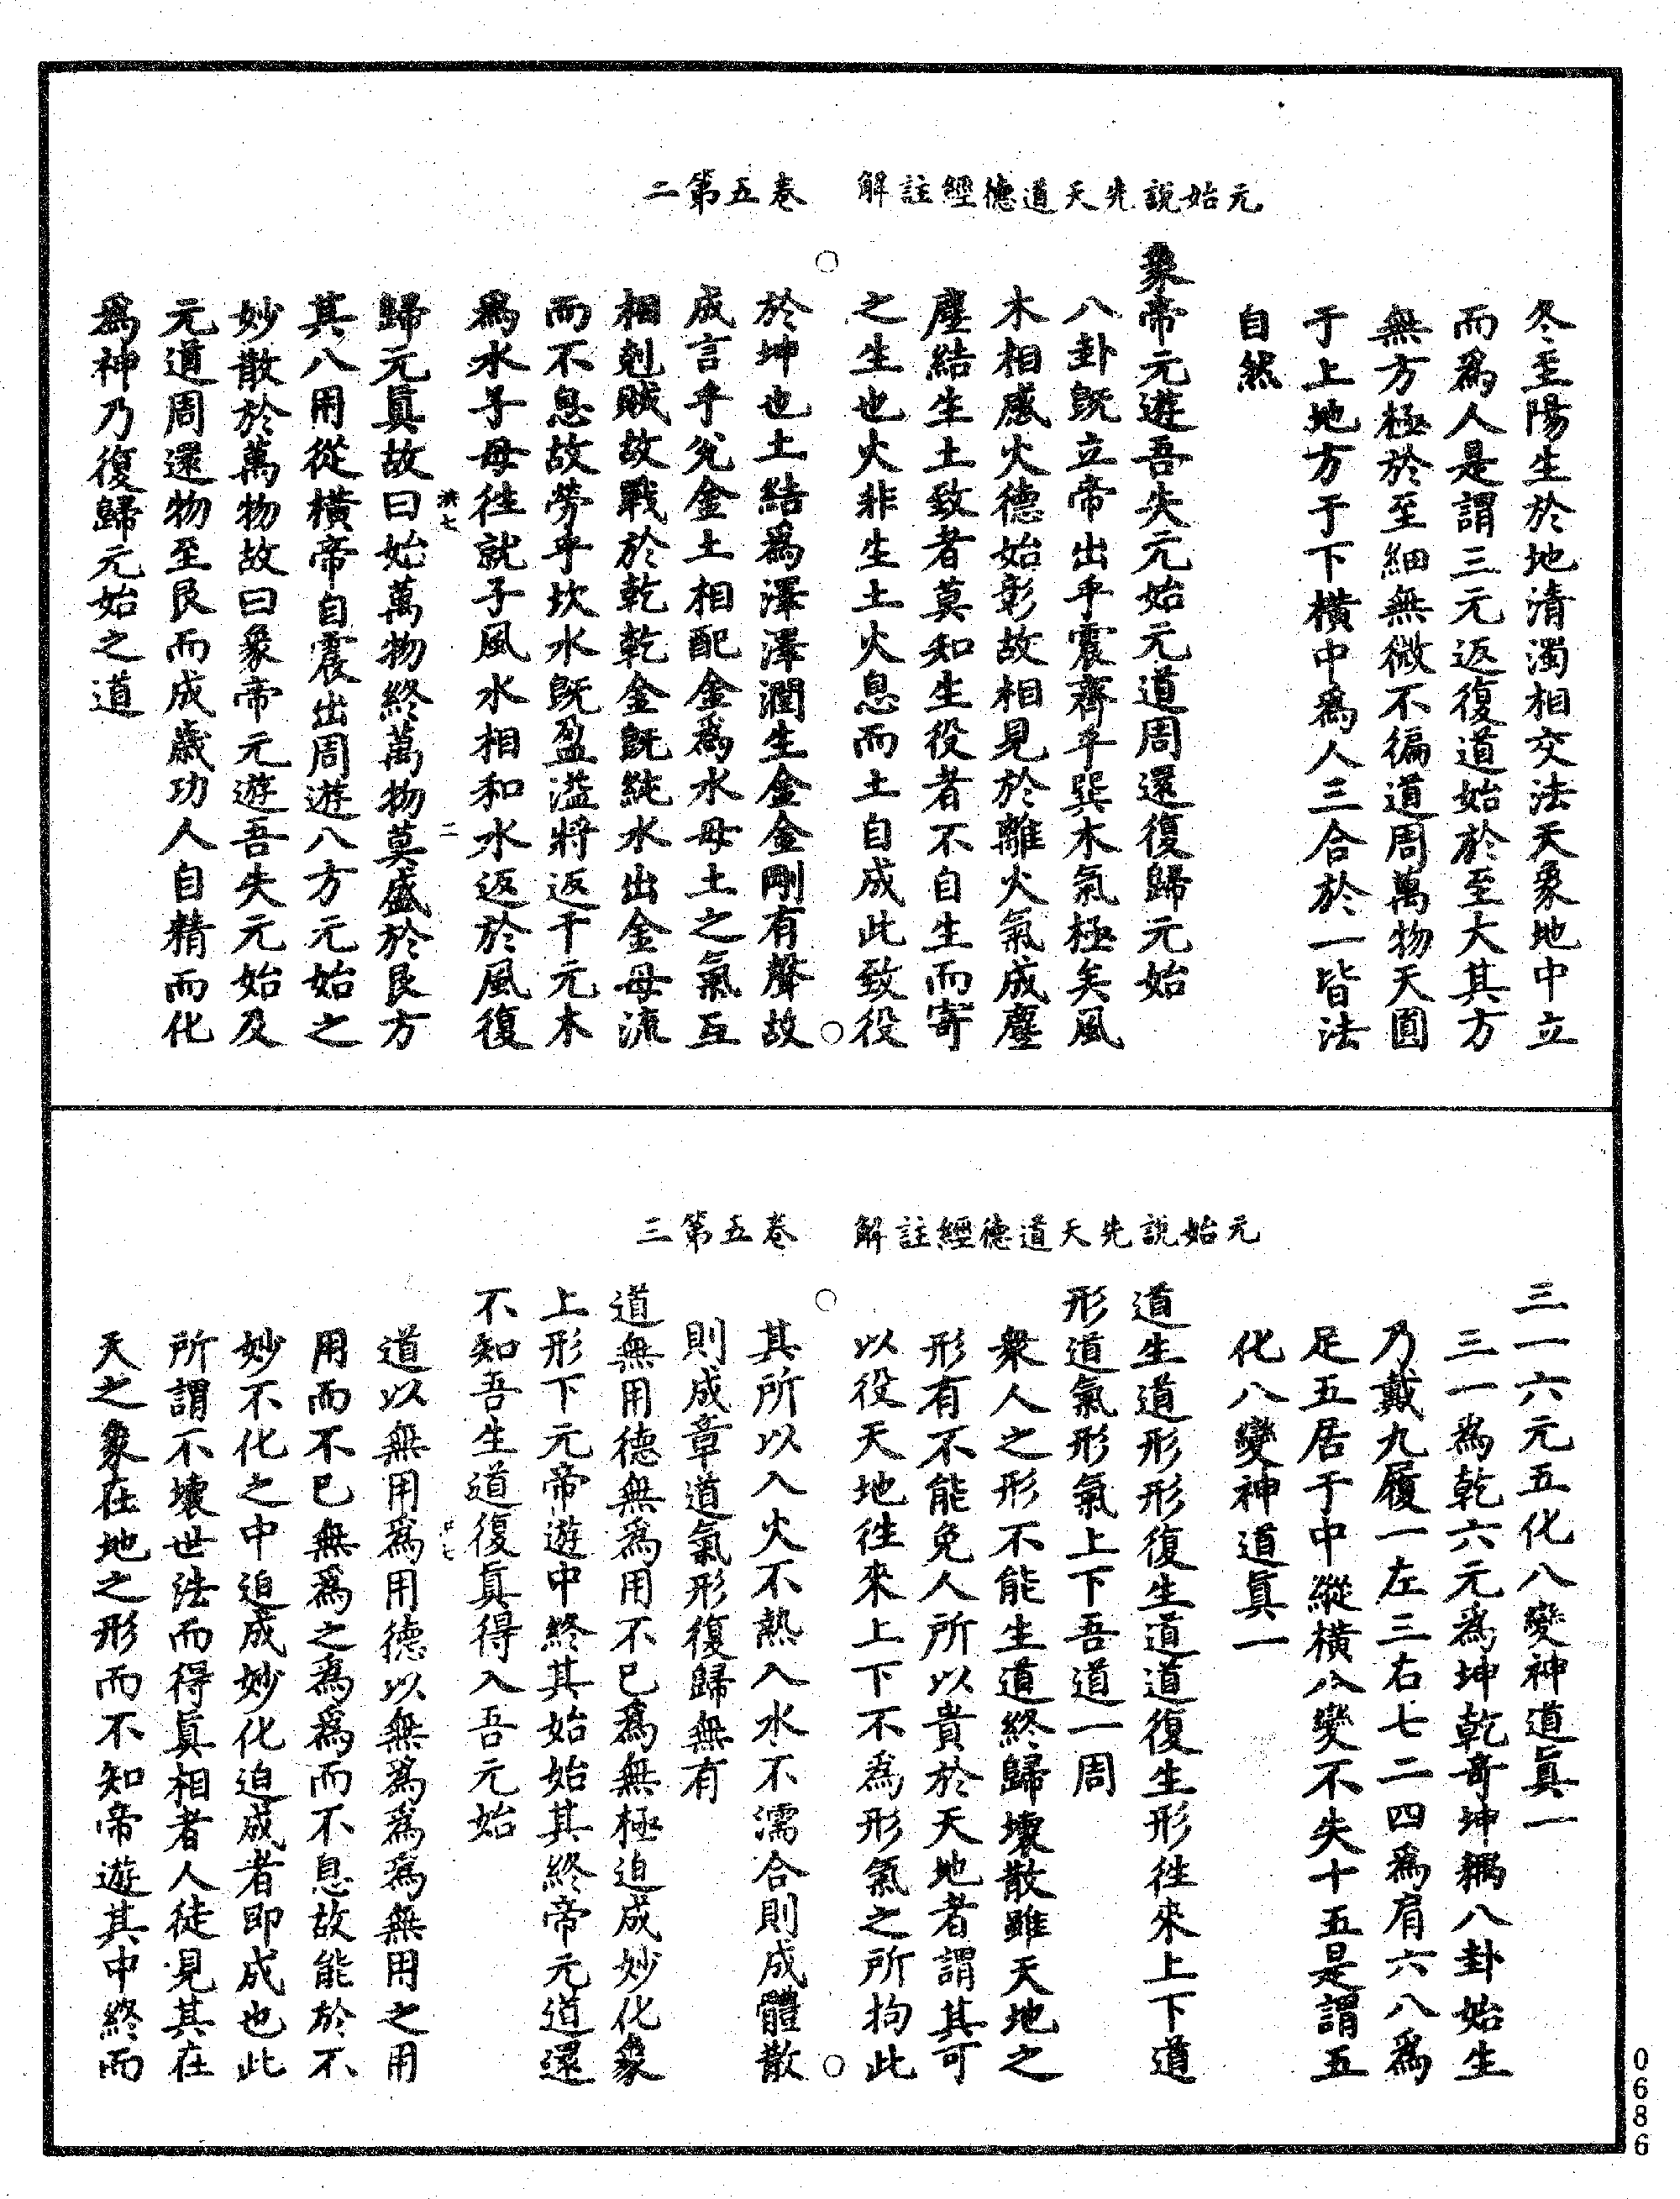 元始說先天道德經註解　卷五第二
冬至陽生於地清濁相交法天象地中立
而爲人是謂三元返復道始於至大其方
無方極於至細無微不徧道周萬物天圓
于上地方于下橫中爲人三合於一皆法
自然
象帝元遊吾失元始元道周還復歸元始
八卦旣立帝出乎震齊乎巽木氣極矣風
木相感火德始彰故相見於離火氣成塵
塵結生土土致者莫知生役者不自生而寄
之生也火非生土火息而土自成此致役
於坤也土結爲澤澤潤生金金剛有聲故
成言乎兌金土相配金爲水母土之氣互
相剋賊故戰於乾乾金旣純水出金母流
而不息故勞乎坎水旣盈溢將返于元木
爲水子母徃就子風水相和水返於風復
歸元眞故曰始萬物終萬物莫盛於艮方
其八用從橫帝自震出周遊八方元始之
妙散於萬物故曰象帝元遊吾失元始及
元道周還物至艮而成歲功人自精而化
爲神乃復歸元始之道
二
元始說先天道德經註解　卷五第三
三一六元五化八變神道眞一
三一爲乾六元爲坤乾奇坤耦八卦始生
乃戴九履一左三右七二四爲肩六八爲
足五居于中縱橫八變不失十五是謂五
化八變神道眞一
道生道形形復生道道復生形徃來上下道
形道氣形氣上下吾道一周
衆人之形不能生道終歸壞散雖天地之
形有不能免人所以貴於天地者謂其可
以役天地徃來上下不爲形氣之所拘此
其所以入火不熱入水不濡合則成體散
則成章道氣形復歸無有
道無用德無爲用不已爲無極迫成妙化象
上形下元帝遊中終其始始其終帝元道還
不知吾生道復眞得入吾元始
道以無用爲用德以無爲爲爲無用之用
用而不已無爲之爲爲而不息故能於不
妙不化之中迫成妙化迫成者即成也此
所謂不壞世法而得眞相者人徒見其在
天之象在地之形而不知帝遊其中終而
0686